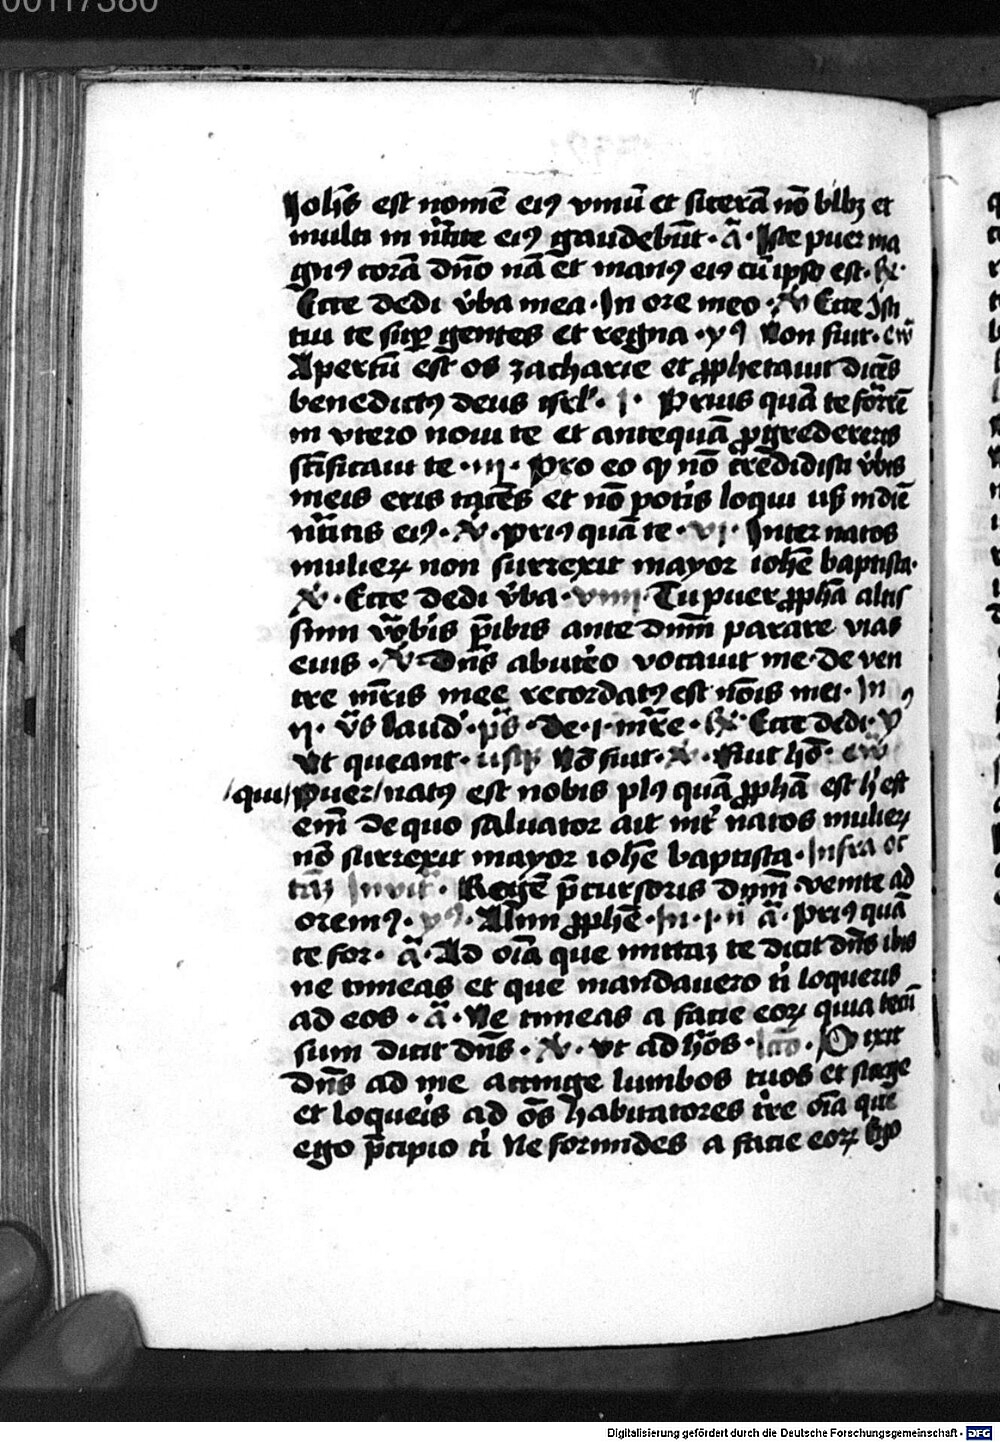 00117380
Joh̄s est nomē eiꝰ vinū et sicerā nō bibꝫ et
multi in nͣtīte eiꝰ gaudebūt · ā · Iste puer ma
gnꝰ corā dn̄o nā et manꝰ eiꝰ cū ipso est · ℟ ·
Ecce dedi v̓ba mea · In ore meo · ℣ Ecce 9sti
tui te suꝑ gentes et regna · yꝰ Non fuit · ew̄
Apertū est os zacharie et ꝓphetauit dicēs
benedictꝰ deus isrl̓ · I · Prius quā te formarē
in vtero noui te et antequā ꝓgrederer̓is
sc̄ificaui te · III · Pro eo ꝙ nō credidisti v̓bis
meis eris tacēs et nō pot̓is loqui usqꝫ in diē
nͣtītis eiꝰ · ℣ · Priꝰ quā te · VI · Inter natos
mulierꝝ non surrexit mayor ioh̄e baptista ·
℣ · Ecce dedi v̓ba · VIIII · Tu puer ꝓph̄a altis
simi vocͣb̓is p̄ibis ante dn̄m parare vias
eius · ℣ · Dn̄s ab utero vocauit me · De ven
tre mr̄is mee recordatꝰ est nōis mei · In
II · v̓s laud̓ · p̄s · De · I · mr̄e · ℟ · Ecce dedi · yꝰ
Vt queant · usqꝫ Nō fuit · ℣ · Fuit hō · ew̄
/qui/ Puer / natꝰ est nobis plꝰ quā ꝓph̄a est h̓ est
em̄ de quo saluator ait int̓ natos mulierꝝ
nō surrexit mayor ioh̄e baptista · Infra oc
tāꝫ Inuit̄ · Regē p̄cursoris dn̄m · venite ad
oremꝰ · yꝰ · Alm̄i ꝓphē · In · I · n̄ ā · Priꝰ quā
te for · ā · Ad oīa que mittaꝫ te dicit dn̄s ibis
ne timeas et que mandauero ti loqueris
ad eos · ā · Ne timeas a facie eorꝝ quia tecū
sum dicit dn̄s · ℣ · Vt ad hōs · lc̄o · Dixit
Dn̄s ad me accinge lumbos tuos et surge
et loquer̓is ad ōs habitatores tr̄e oīa que
ego p̄cipio ti Ne formides a facie eorꝝ Ego
Digitalisierung gefördert durch die Deutsche Forschungsgemeinschaft - DFG